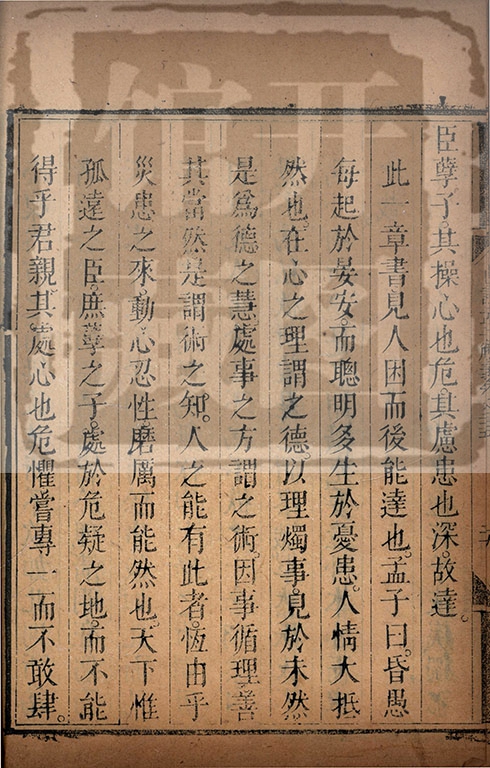 臣孽子。其操心也危。其慮患也深。故達。
此一章書見人因而後能達也。孟子曰。昏愚
每起於晏安。而聰明多生於憂患。人情大抵
然也。在心之理謂之德。以理燭事。見於未然
是爲德之慧。處事之方謂之術。因事循理。善
其當然。是謂術之知。人之能有此者。恆由乎
災患之來。動心忍性。磨厲而能然也。天下惟
孤遠之臣。庶孽之子。處於危疑之地。而不能
得乎君親。其處心也危懼。嘗專一而不敢肆。